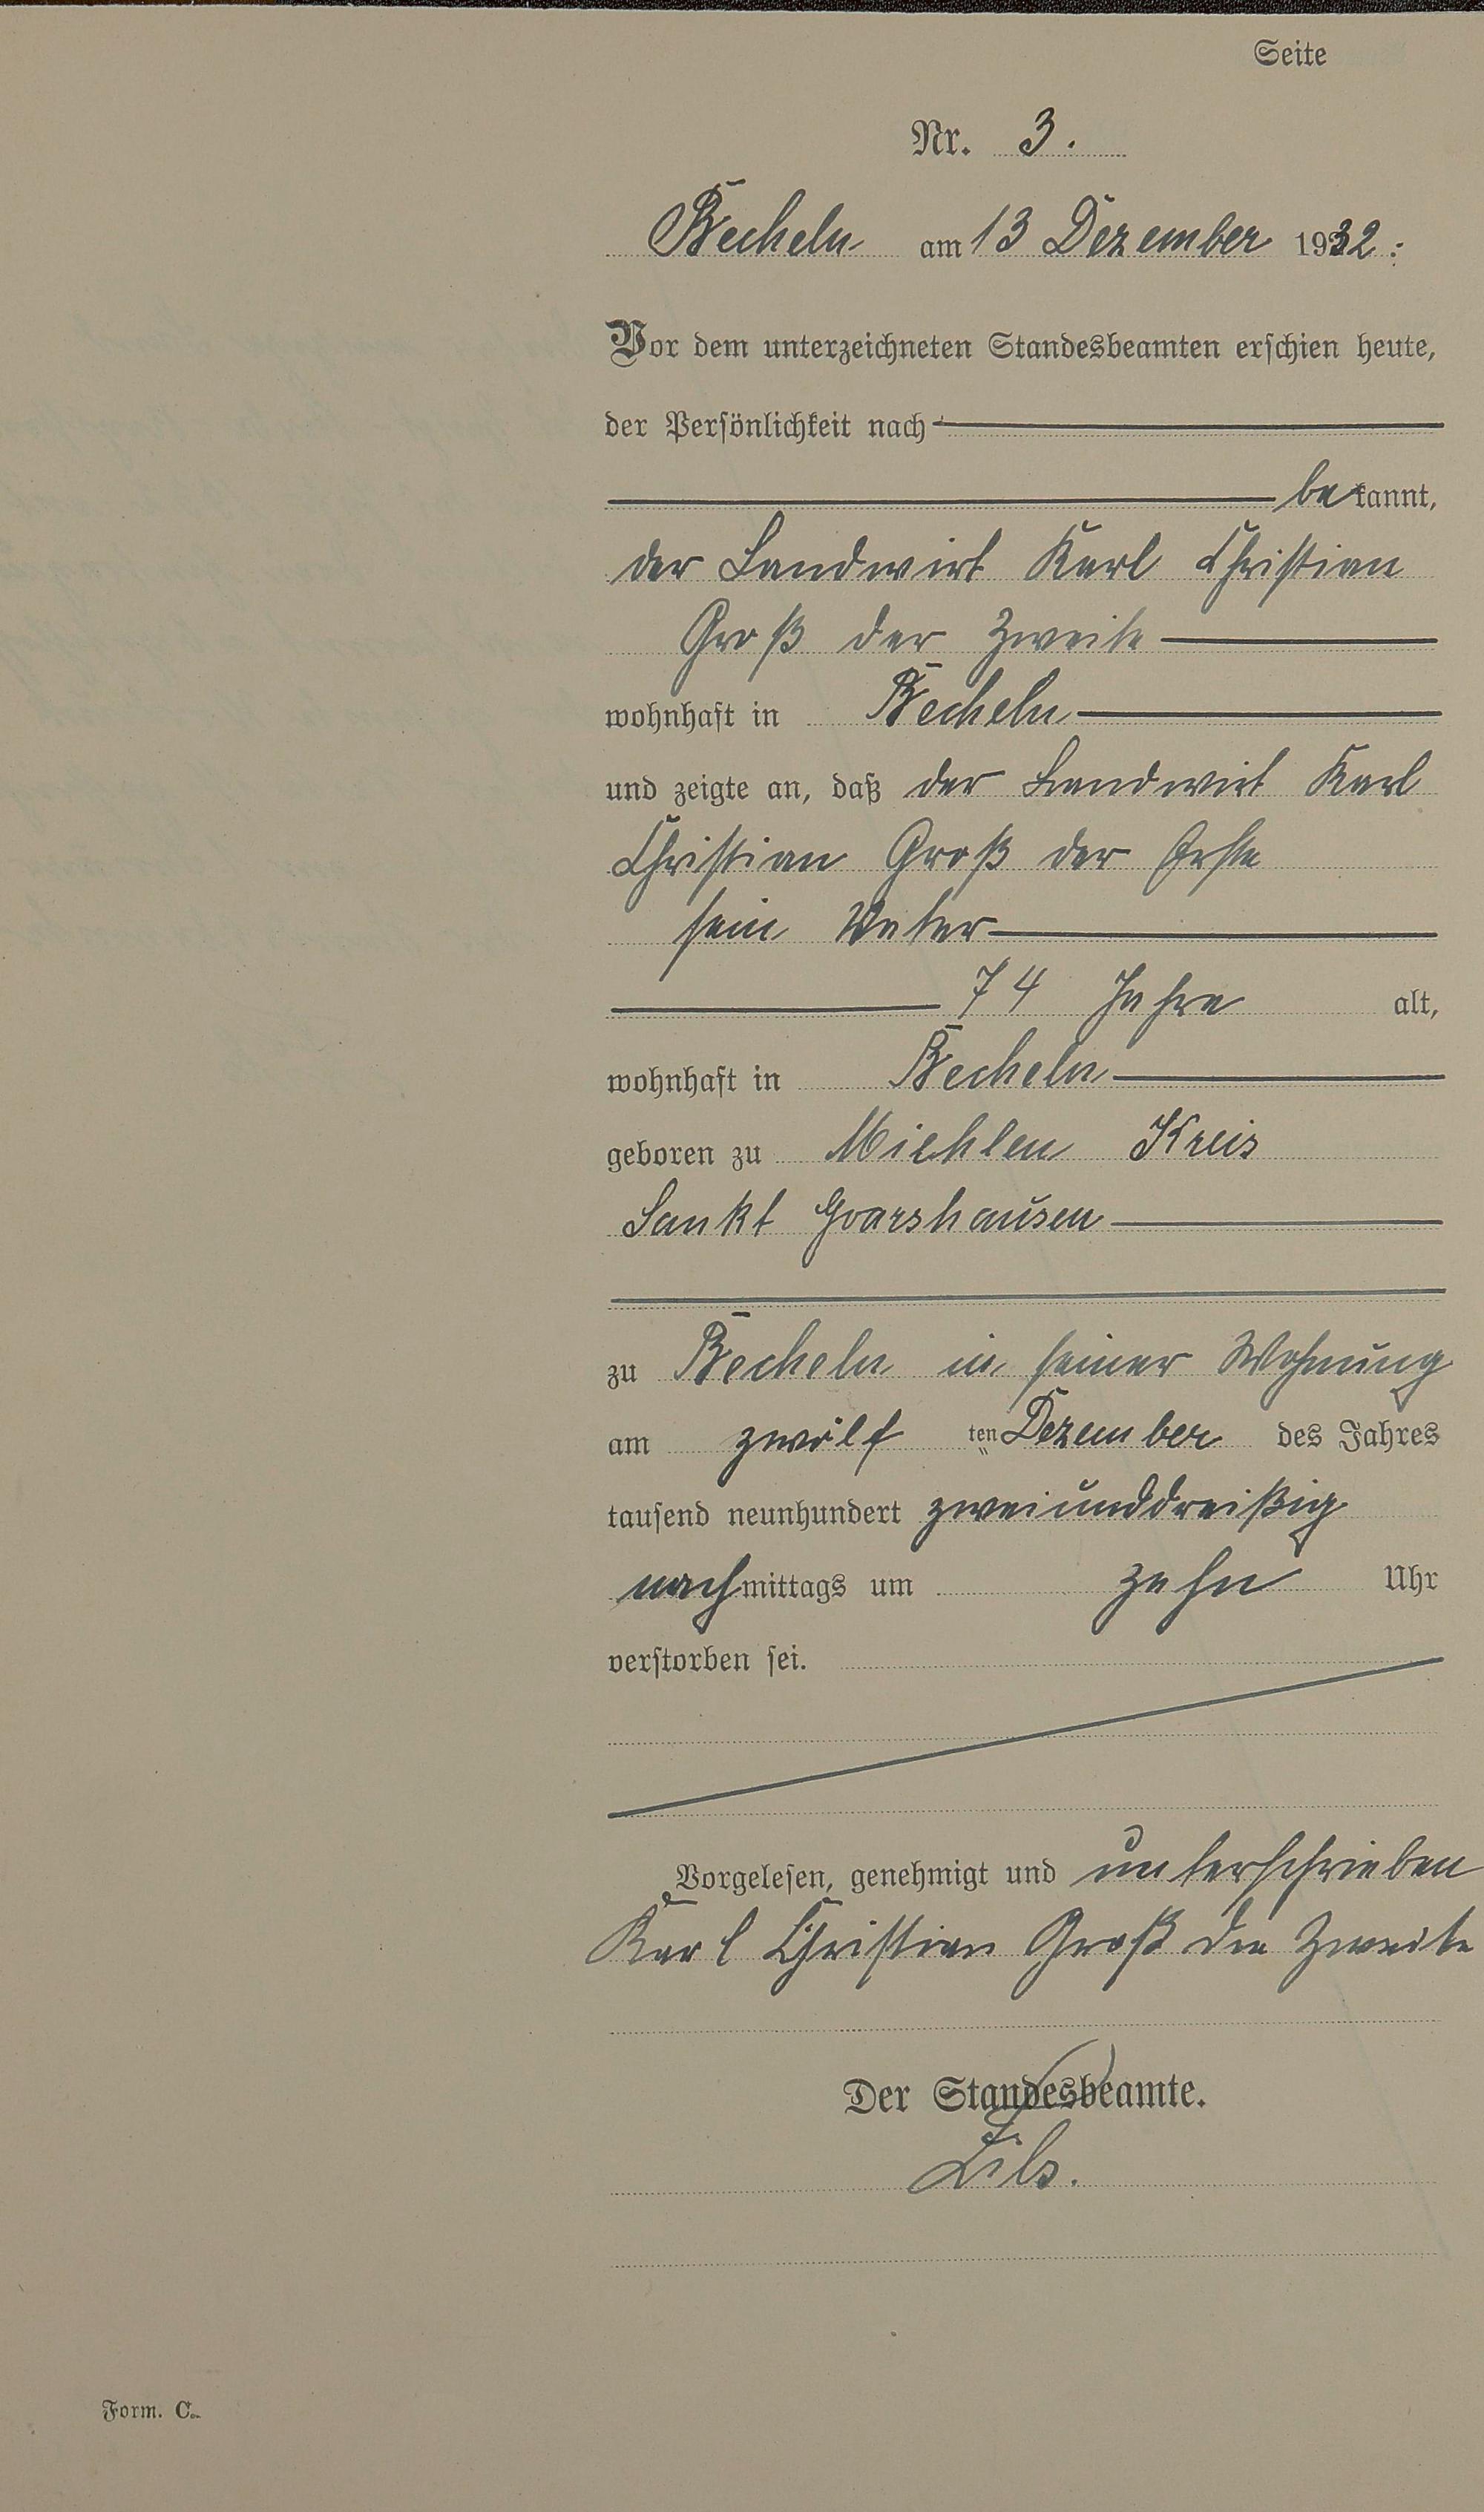 Seite
Nr. 3.
Becheln am 13 Dezember 1932.
Vor dem unterzeichneten Standesbeamten erschien heute,
der Persönlichkeit nach
bekannt,
der Landwirt Karl Christian
Groß der Zweite
wohnhaft in Becheln
und zeigte an, daß der Landwirt Karl
Christian Groß der Erste
sein Vater
74 Jahre alt,
wohnhaft in Becheln
geboren zu Miehlen Kreis
Sankt Goarshausen
zu Becheln in seiner Wohnung
am zwölf ten Dezember des Jahres
tausend neunhundert zweiunddreißig
nachmittags um zehn Uhr
verstorben sei.
Vorgelesen, genehmigt und unterschrieben
Karl Christian Groß der Zweite
Der Standesbeamte.
Form. C.